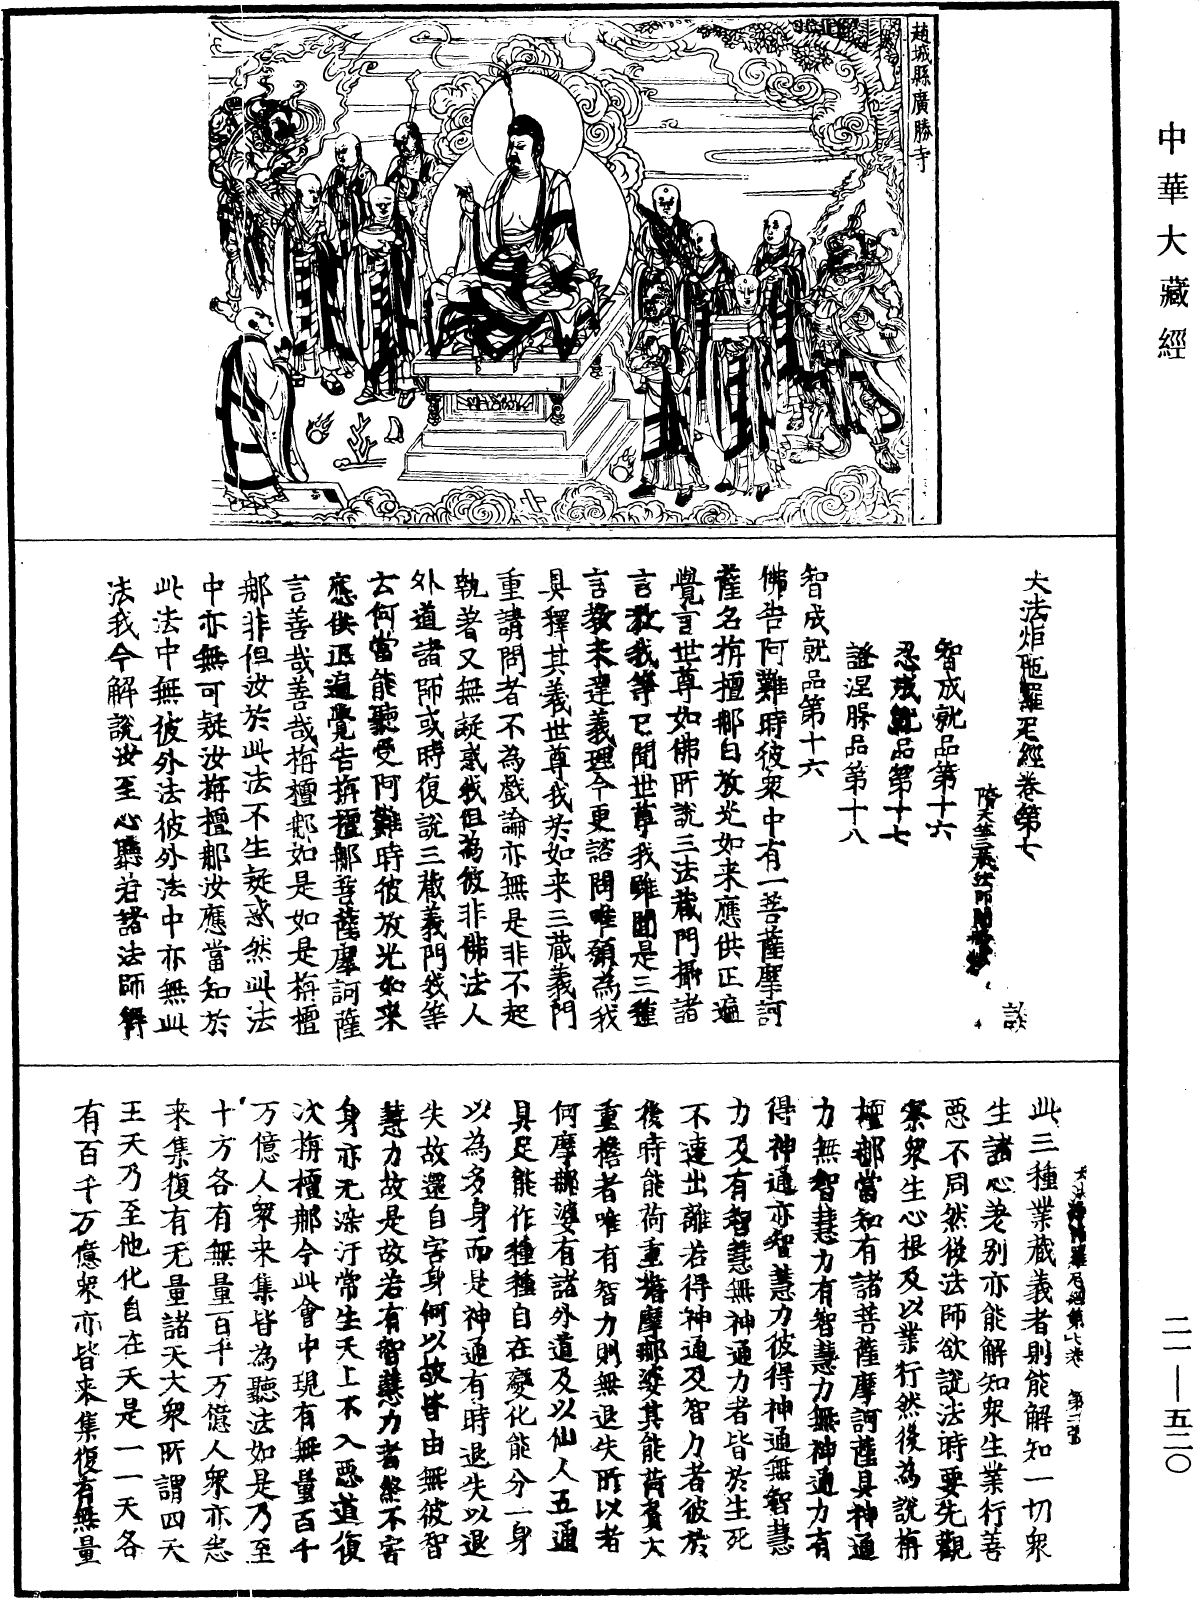 中華大藏經
二一—五二〇
趙城縣廣勝寺
大法炬陁羅尼經卷第七
談
隋天竺三藏法師
智成就品第十六
忍成就品第十七
證涅槃品第十八
智成就品第十六
佛告阿難時彼衆中有一菩薩摩訶
薩名栴檀那白放光如来應供正遍
覺言世尊如佛所說三法藏門攝諸
言教我等已聞世尊我雖聞是三種
言教未達義理今更諮問唯願為我
具釋其義世尊我於如来三藏義門
重請問者不為戲論亦無是非不起
執著又無疑惑我但為彼非佛法人
外道諸師或時復說三藏義門我等
云何當能聽受阿難時彼放光如来
應供正遍覺告栴檀那菩薩摩訶薩
言善哉善哉栴檀那如是如是栴檀
那非但汝於此法不生疑惑然此法
中亦無可疑汝栴檀那汝應當知於
此法中無彼外法彼外法中亦無此
法我今解說汝至心聽若諸法師解
第七卷 第二張
此三種業藏義者則能解知一切衆
生諸心差別亦能解知衆生業行善
惡不同然後法師欲說法時要先觀
察衆生心根及以業行然後為說栴
檀那當知有諸菩薩摩訶薩具神通
力無智慧力有智慧力無神通力有
得神通亦智慧力彼得神通無智慧
力及有智慧無神通力者皆於生死
不速出離若得神通及智力者彼於
後時能荷重擔摩那婆其能荷負大
重擔者唯有智力則無退失所以者
何摩那婆有諸外道及以仙人五通
具足能作種種自在變化能分一身
以為多身而是神通有時退失以退
失故還自害身何以故皆由無彼智
慧力故是故若有智慧力者終不害
身亦无染汙常生天上不入惡道復
次栴檀那今此會中現有無量百千
万億人衆来集皆為聽法如是乃至
十方各有無量百千万億人衆亦悉
来集復有无量諸天大衆所謂四天
王天乃至他化自在天是一一天各
有百千万億衆亦皆来集復有無量